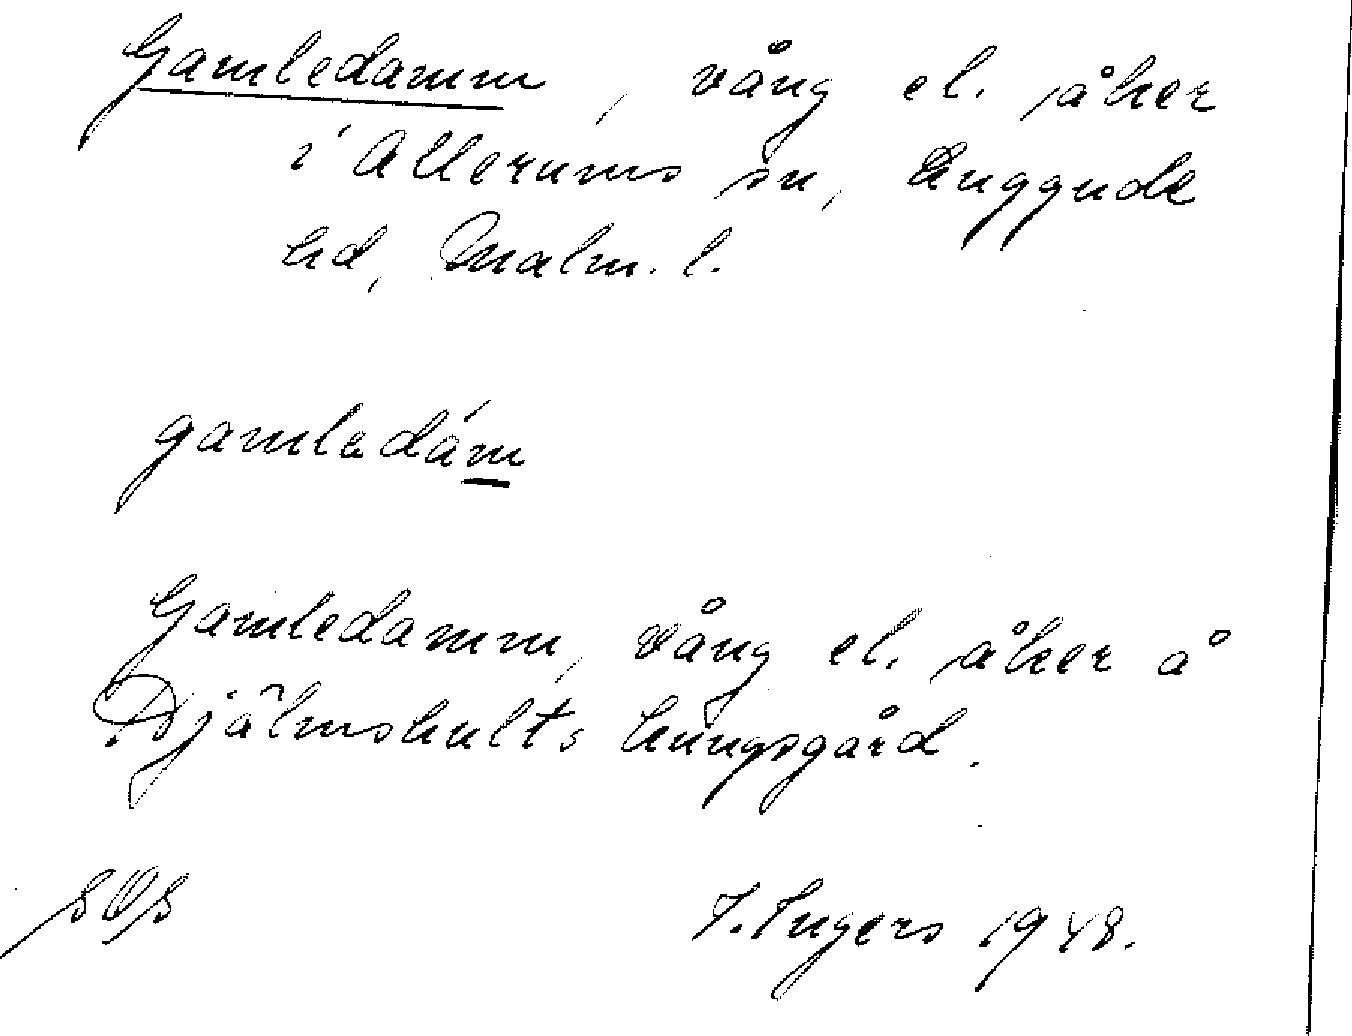 Gamledamm, vång el. åker
i Allerums sn, Luggude
hd, Malm. l.
gamledám
Gamledamm, vång el. åker å
Djälmshults kungsgård.
I. Ingers 1948.